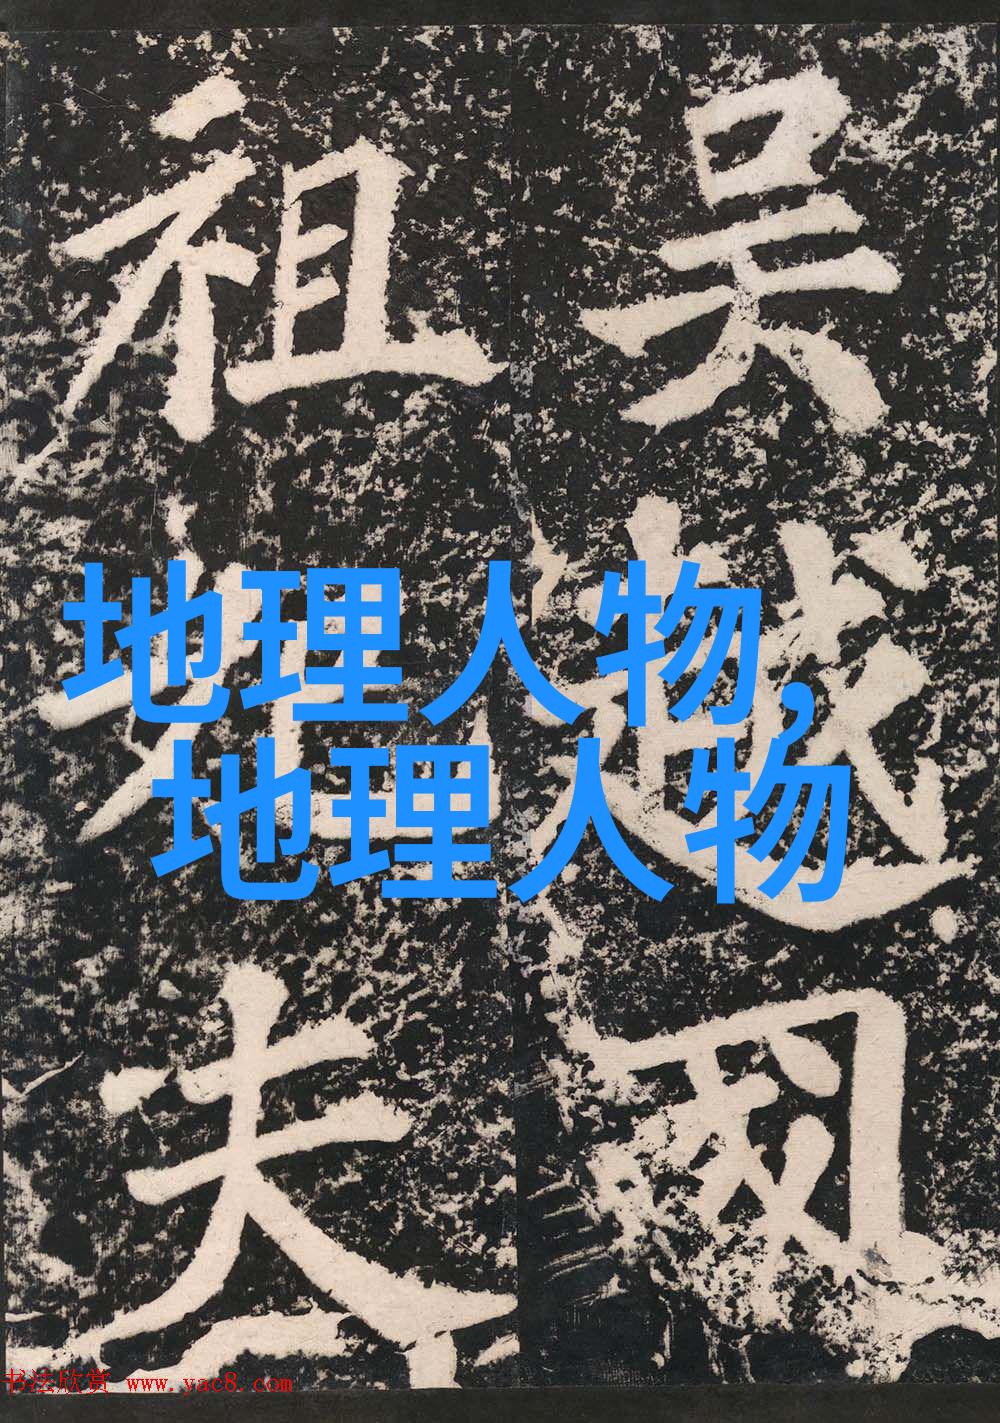 吴越
祖
夫
地理人物,
地理人物
书法欣赏 www.yac8.com